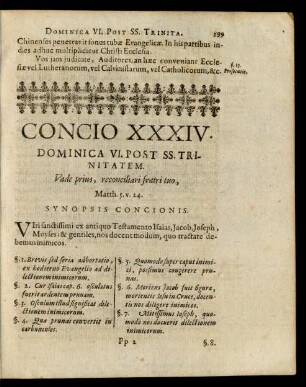 DOMINICA VI. POST SS. TRINITA. 299
Chinenses penetravit sonus tubæ Evangelicæ. In his partibus in-
dies adhuc multiplicatur Christi Ecclesia.
Vos jam judicate, Auditores, an hæc conveniant Eccle-
siæ vel Lutheranorum, vel Calvinistarum, vel Catholicorum, &c.
§. 17.
CONCIO XXXIV.
DOMINICA VI. POST SS. TRI-
NITATEM.
Vade prius, reconciliari fratri tuo,
Matth. 5. v. 24.
SYNOPSIS CONCIONIS.
VIri sanctissimi ex antiquo Testamento Isaias, Jacob, Joseph,
Moyses: & gentiles, nos docent modum, quo tractare de-
bemus inimicos.
§. 1. Brevis sed seria adhortatio,
ex hodierno Evangelio ad di-
lectionem inimicorum.
§. 2. Cur Isaias cap. 6. osculatus
fuerit ardentem prunam.
§. 3. Osculum istud significat dile-
ctionem inimicorum.
§. 4. Quæ prunas convertit in
carbunculos.
§. 5. Quomodo super caput inimi-
ci, possimus congerere pru-
nas.
§. 6. Moriens Jacob fuit figura,
morientis Jesu in Cruce, docen-
tis nos diligere inimicos.
§. 7. Mitissimus Joseph, quo-
modo nos docuerit dilectionem
inimicorum.
Pp 2 §. 8.